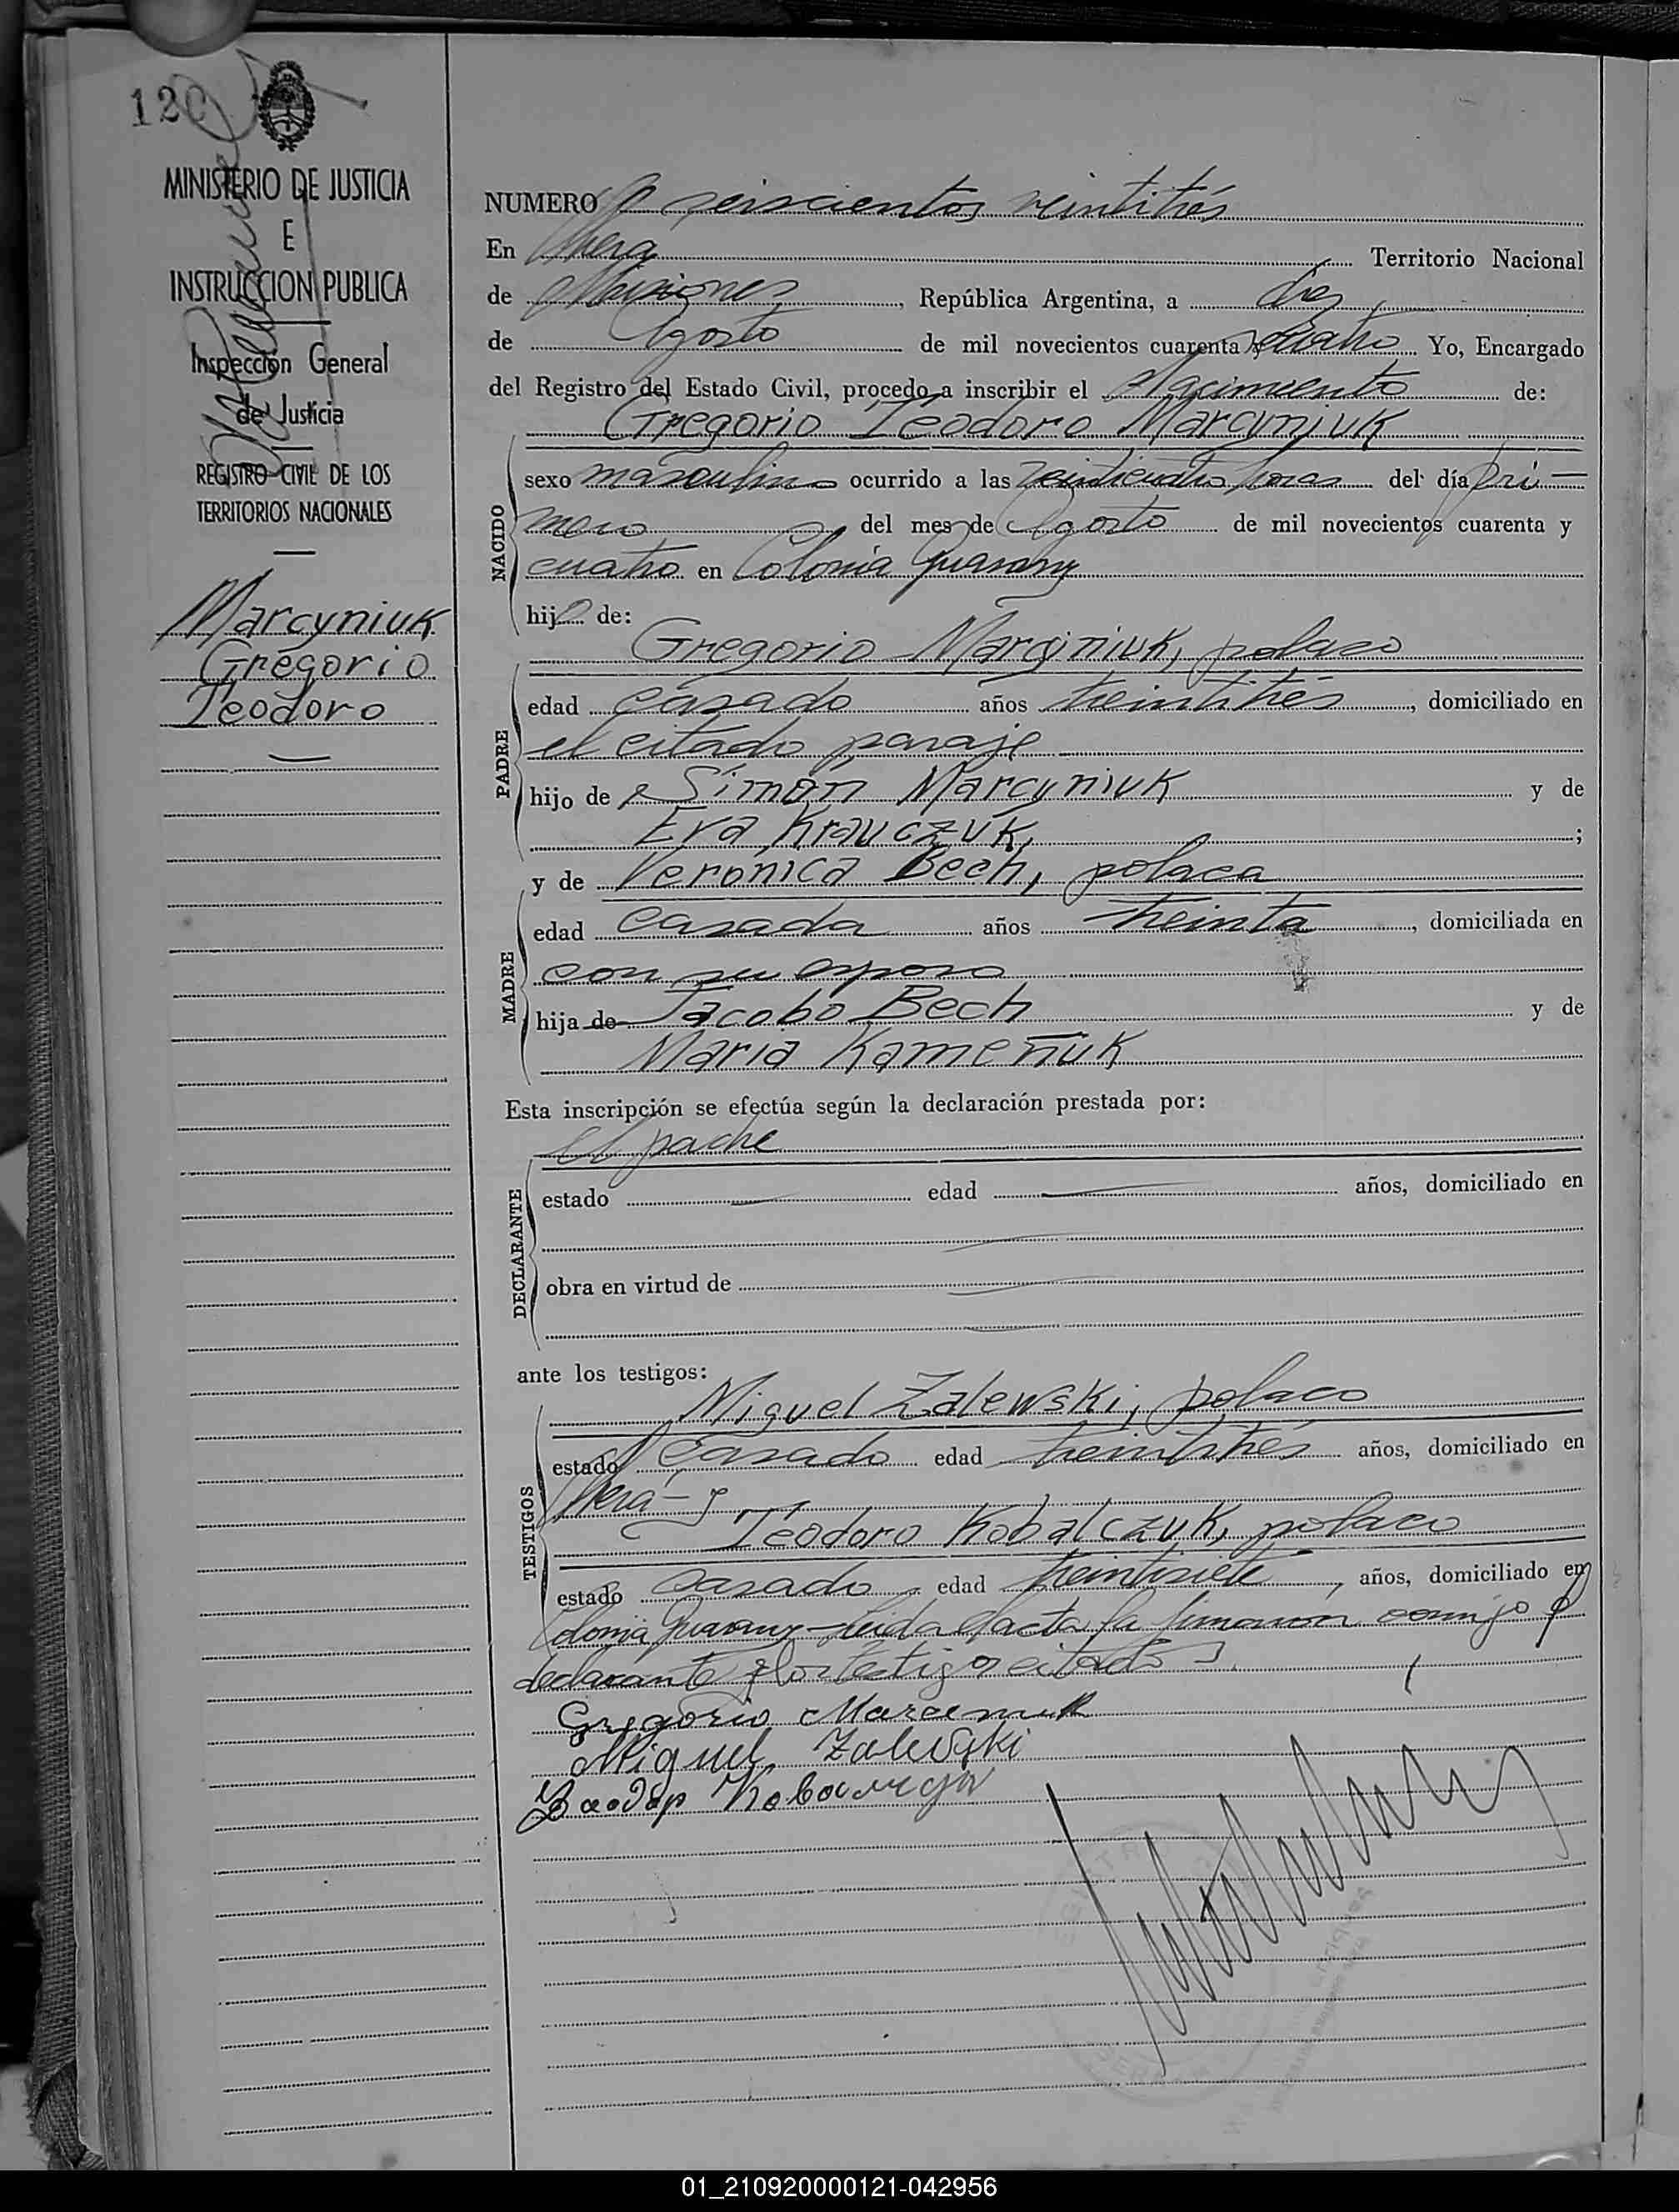 120
MINISTERIO DE JUSTICIA
E
INSTRUCCION PUBLICA
Inspección General
de Justicia
REGISTRO CIVIL DE LOS
TERRITORIOS NACIONALES
Marcyniuk
Gregorio
Teodoro
NUMERO seiscientos veintitrés
En Oberá Territorio Nacional
de Misiones, República Argentina, a dos
de Agosto de mil novecientos cuarenta y cuatro Yo, Encargado
del Registro del Estado Civil, procedo a inscribir el Nacimiento de:
Gregorio Teodoro Marcyniuk
NACIDO
sexo masculino ocurrido a las veinticuatro horas del día pri-
mero del mes de Agosto de mil novecientos cuarenta y
cuatro en Colonia Guarany
hijo de:
Gregorio Marcyniuk, polaco
PADRE
edad casado años treintitrés, domiciliado en
el citado paraje
hijo de Simón Marcyniuk y de
Eva Krauczuk, ;
y de Verónica Bech, polaca
MADRE
edad casada años treinta, domiciliada en
con su esposo
hija de Jacobo Bech y de
María Kameñuk
Esta inscripción se efectúa según la declaración prestada por:
el padre
DECLARANTE
estado edad años, domiciliado en
obra en virtud de
ante los testigos:
Miguel Zalewski, polaco
TESTIGOS
estado casado edad treintitrés años, domiciliado en
Oberá - y
Teodoro Kobalczuk, polaco
estado casado edad treintisiete, años, domiciliado en
Colonia Guarany - Leida el acta la firmaron conmigo el
declarante y los testigos citados
Gregorio
Miguel Zalewski
01_210920000121-042956